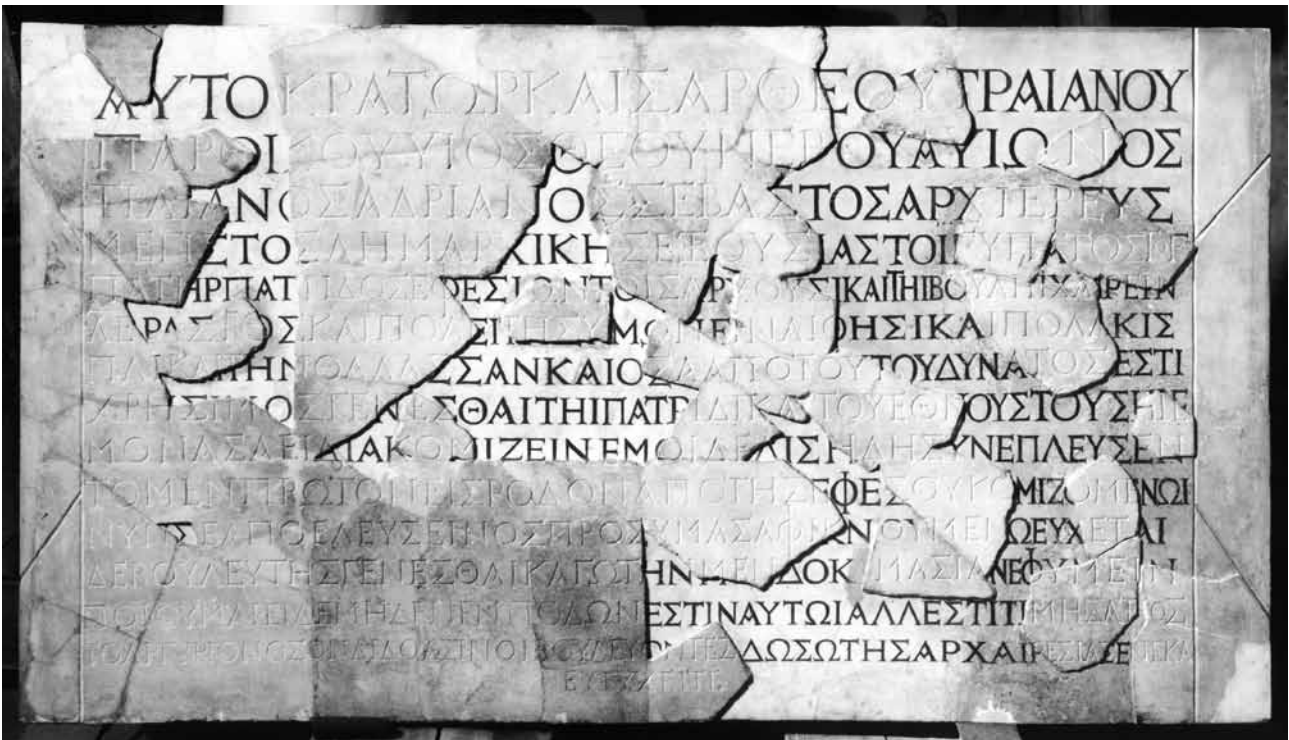 ΑΥΤΟΚΡΑΤΩΡΚΑΙΣΑΡΘΕΟΥΤΡΑΙΑΝΟΥ
ΠΑΡΘΙΚΟΥΥΙΟΣΘΕΟΥΝΕΡΟΥΑΥΙΩΝΟΣ
ΤΡΑΙΑΝΟΣΑΔΡΙΑΝΟΣΣΕΒΑΣΤΟΣΑΡΧΙΕΡΕΥΣ
ΜΕΓΙΣΤΟΣΔΗΜΑΡΧΙΚΗΣΕΞΟΥΣΙΑΣΤΟΙΓΥΠΑΤΟΣΤΟΓ
ΠΑΤΗΡΠΑΤΡΙΔΟΣΕΦΕΣΙΩΝΤΟΙΣΑΡΧΟΥΣΙΚΑΙΤΗΙΒΟΥΛΗΙΧΑΙΡΕΙΝ
ΛΕΡΑΣΤΟΣΚΑΙΠΟΛΕΙΤΗΣΥΜΩΝΕΙΝΑΙΦΗΣΙΚΑΙΠΟΛΛΑΚΙΣ
ΤΗΝΘΑΛΑΣΣΑΝΚΑΙΟΣΑΑΠΟΤΟΥΤΟΥΔΥΝΑΤΟΣΕΣΤΙ
ΧΡΗΣΙΜΟΣΓΕΝΕΣΘΑΙΤΗΙΠΑΤΡΙΔΙΚΑΙΤΟΥΕΘΝΟΥΣΤΟΥΣΗΓΕ
ΜΟΝΑΣΑΕΙΔΙΑΚΟΜΙΖΕΙΝΕΜΟΙΔΕΔΙΣΗΔΗΣΥΝΕΠΛΕΥΣΕΝ
ΤΟΜΕΝΠΡΩΤΟΝΕΙΣΡΟΔΟΝΑΠΟΤΗΣΕΦΕΣΟΥΚΟΜΙΖΟΜΕΝΩΙ
ΝΥΝΔΕΑΠΟΕΛΕΥΣΕΙΝΟΣΠΡΟΣΥΜΑΣΑΦΙΚΝΟΥΜΕΝΩΕΥΧΕΤΑΙ
ΔΕΒΟΥΛΕΥΤΗΣΓΕΝΕΣΘΑΙΚΑΓΩΤΗΝΜΕΝΔΟΚΙΜΑΣΙΑΝΕΦΥΜΕΙΝ
ΠΟΙΟΥΜΑΙΕΙΔΕΜΗΔΕΝΕΝΠΟΔΩΝΕΣΤΙΝΑΥΤΩΙΑΛΛΕΣΤΙΤΙΜΗΣΑΞΙΟΣ
ΤΟΑΡΓΥΡΙΟΝΟΣΟΝΔΙΔΟΑΣΙΝΟΙΒΟΥΛΕΥΟΝΤΕΣΔΩΣΩΤΗΣΑΡΧΑΙΡΕΣΙΑΣΕΝΕΚΑ
ΕΥΤΥΧΕΙΤΕ